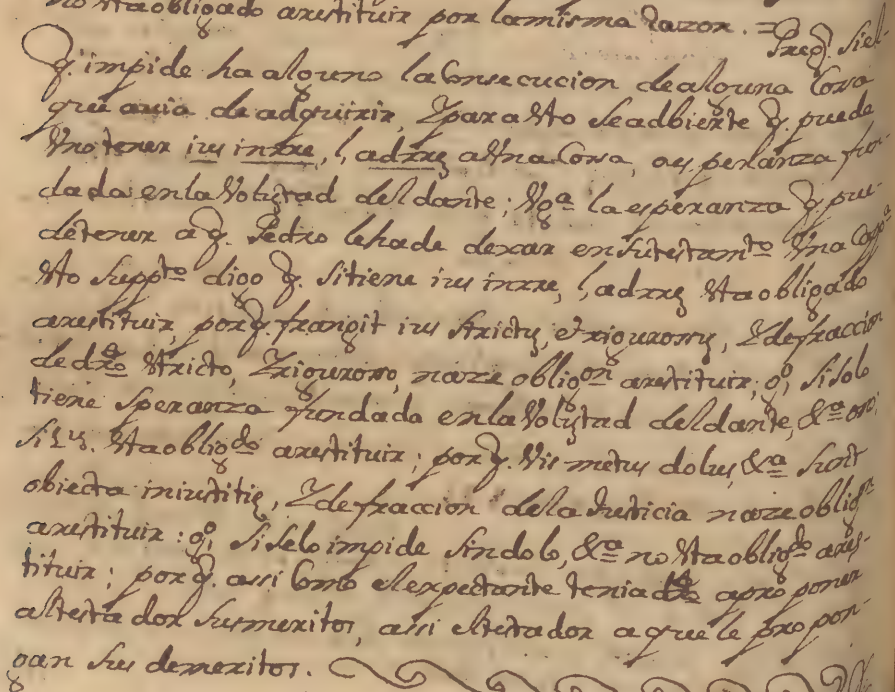 no Sta obligado arestituir por lamisma Razon. = Preg. Siel
q. impide ha alguno la Consecucion dealguna Cosa
que auia de adquirir, Y para Sto Seadbierte q. puede
Vno tener ius inrre, l, adrrē a Vna Cosa, o esperanza fun-
dada en la Volūtad del dante; Vgª la esperanza q. pue-
de tener a q. Pedro lehade dexar en Sutestamto Vna Cosa
Sto Supp.to digo q. Sitiene ius inrre, l, adrrē Sta obligado
arestituir, por q. frangit ius Strictū, et rigurosū, Y defraccion
de dro Stricto, Y riguroso, naze oblig.on arestituir; go, Si Solo
tiene Speranza fundada en la Volūtad del dante, &ª
Sta oblig.do arestituir; por q. Vis metus dolus, &ª Sunt
obiecta iniustitiē, Y defraccion dela Justicia naze oblig.on
arestituir: go, Si Selo impide Sindolo, &ª no Sta oblig.do ares-
tituir; por q. assi Como elexpectante tenia dro a proponer
altestador Susmeritos, assi eltestador aque le propon-
gan Sus demeritos.